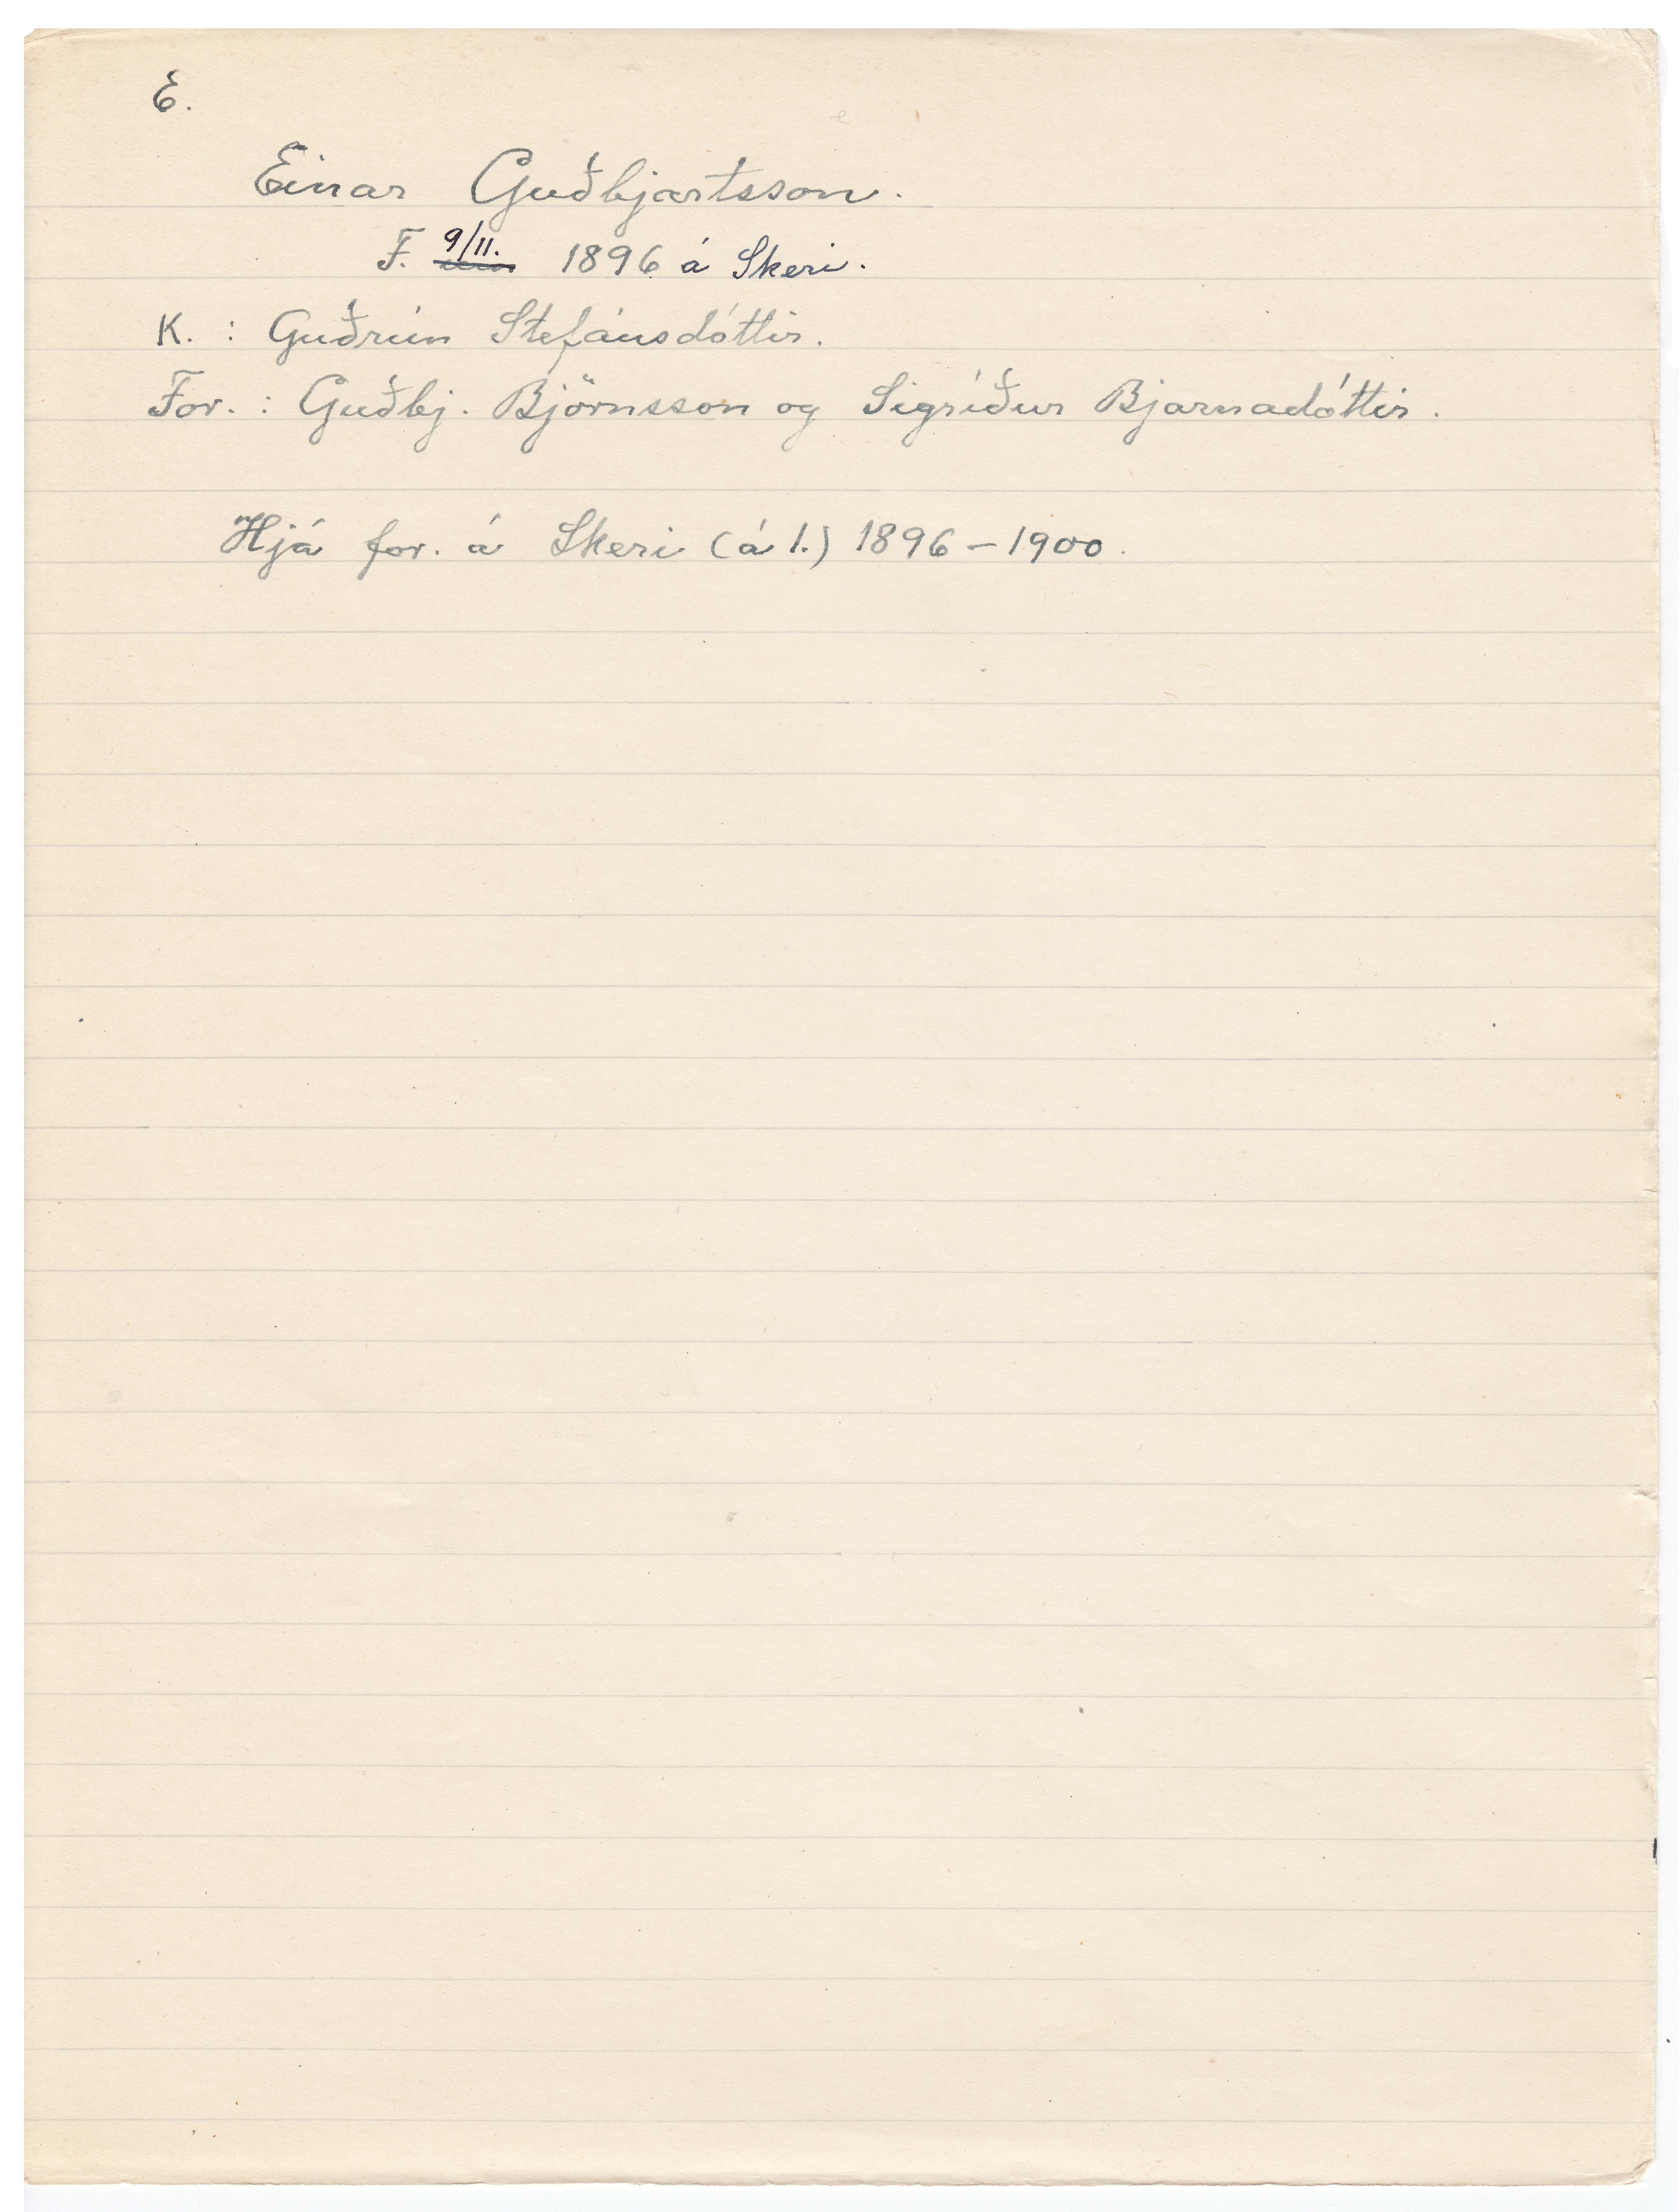 E.
Einar Guðbjartsson.
F. 9/11. 1896 á Skeri.
K. : Guðrún Stefánsdóttir.
For. : Guðbj. Björnsson og Sigríður Bjarnadóttir.
Hjá for. á Skeri (á 1.) 1896 – 1900.